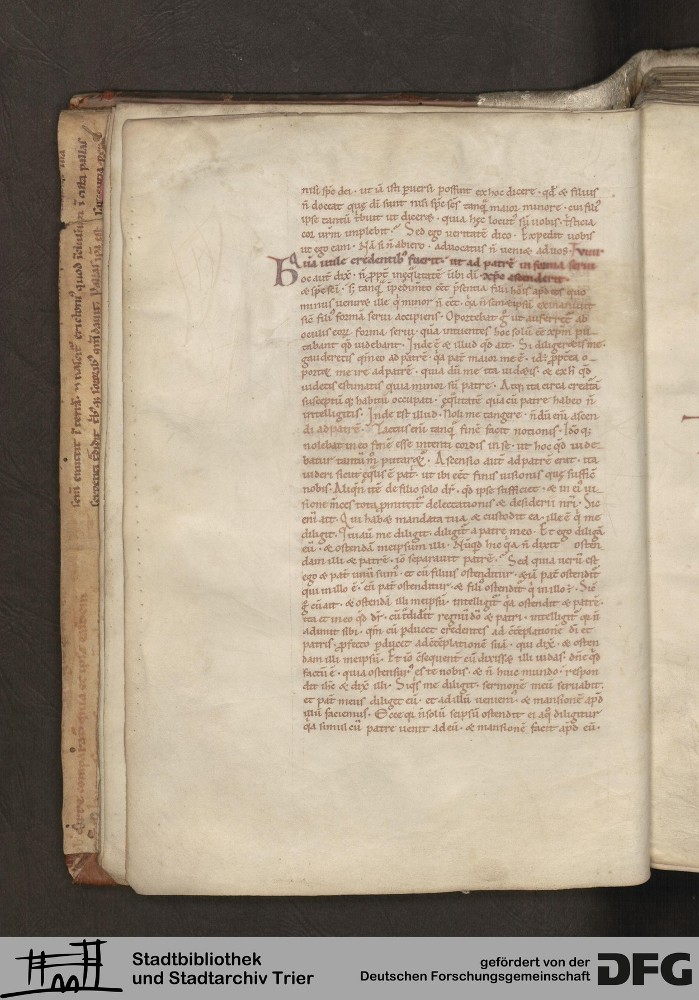 nisi spe dei · ut iā isti pversi possint ex hoc dicere · qđ & filius
n̄ doceat que dī sunt nisi spe ses tanq̄ maior minore · cui filiꝰ
ipse tantū t̄buit ut diceret · quia hec locutꝰ sū vobis · t̄sticia
cor urm̄ implebit · Sed ego veritatē dico · Expedit vobis
ut ego eam · Nā si n̄ abiero · advocatus n̄ veniet ad vos ·
uā utile credentibꝰ fuerit · ut ad patrē in forma servi
oc aut̄ dix̄ · n̄ ꝓpt̄ inęq̄litatē ubi dī · xp̄o ascenderit
& sp̄e sēi · s; tanq̄ īpedim̄to eēt p̄sentia filii hōis apđ eos quo
minus veniret ille q̄ minor n̄ eēt · q̄a n̄ semetipsū exinanivit
sic̄ filiꝰ formā servi accipiens · Oportebat g̊ ut auferret̄ ab
oculis eoꝝ forma servi · quā intuentes hoc solū eē xp̄m pu
tabant qđ videbant · Inde ē & illud qđ ait · Si diligeretis me
gauderetis qm̄ eo ad patrē · q̄a pat̄ maior me ē · id; ꝓpt̄ea o_
portet me ire ad patrē · quia dū me ita videtis · & ex h̊ qđ
videtis estimatis quia minor sū patre · Atq; ita circa creatā
susceptū q; habitū occupati · ęq̄litatē quā cū patre habeo n̄
intelligitis · Inde est illud · Noli me tangere · n̄dū enī ascen
di ad patrē · Tactus enī tanq̄ finē facit notionis · Ido q;
nolebat in eo finē esse intenti cordis in se · ut hoc qđ vide
batur tantū m̊ putaret̄ · Ascensio aut̄ ad patrē erat · ita
videri sicut ęq̄lis ē pat̄i · ut ibi eēt finis visionis que sufficit
nobis · Aliq̄n itē de filio solo dr̄ · qđ ipse sufficiet · & in ei vi_
sione m̄ces tota ꝓmittit̄ delectationis & desiderii nr̄i · Sic
enī ait · Qui habet mandata mea & custodit ea · ille ē q̄ me
diligit · Qui aut̄ me diligit · diligit̄ a patre meo · Et ego diligā
eū · & ostendā meipsum illi · Nūqđ hic q̄a n̄ dixit · osten
dam illi & patrē · io separavit patrē · Sed quia verū est
ego & pat̄ unū sumꝰ · et cū filius ostenditur · & iā pat̄ ostendit̄
qui in illo ē · cū pat̄ ostenditur · & filiꝰ ostendit̄ q̄ in illo ē · Sic̄
g̊ cū ait · & ostendā illi meipsū · intelligit̄ q̄a ostendit & patrē ·
ita et in eo qđ dr̄ · cū tradidit̄ regnū dō & patri · intelligit̄ q; n̄
adimit sibi · qm̄ cū pducet credentes ad cōtēplationē dī et
patris · ꝓfecto pducet ad cōtēplationē suā · qui dix̄ · & osten
dam illi meipsū · Et io cōsequent̄ cū dixisset illi iudas · dn̄e qđ
factū ē · quia ostensurꝰ es te nobis · & n̄ huic mundo · respon
dit ihc & dix̄ illi · Siq̄s me diligit · sermonē meū servabit ·
et pat̄ meus diliget eū · et ad illū veniemꝰ · & mansionē apđ
illū faciemus · Ecce q; n̄ solū seipsū ostendit ei a q̊ diligitur
q̄a simul cū patre venit ad eū · & mansionē facit apđ eū ·
Stadtbibliothek
und Stadtarchiv Trier
gefördert von der
Deutschen Forschungsgemeinschaft
DFG